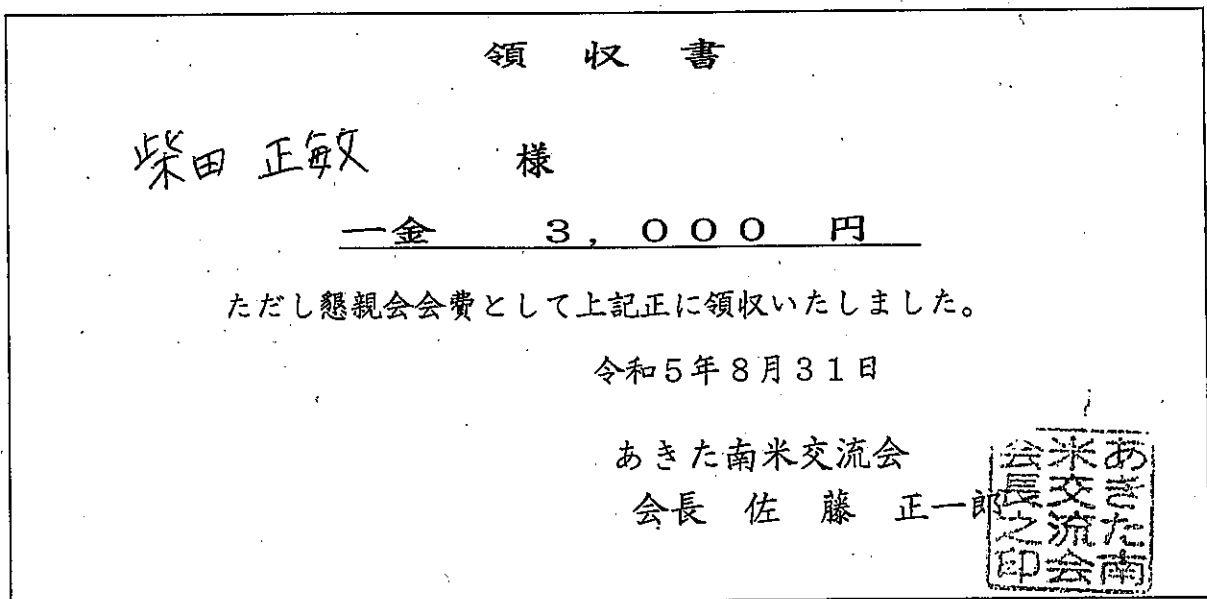 領 収 書
柴田 正敏 様
一金 3,000 円
ただし懇親会会費として上記正に領収いたしました。
令和5年8月31日
あきた南米交流会
会長 佐 藤 正一郎
あきた南
米交流会
会長之印